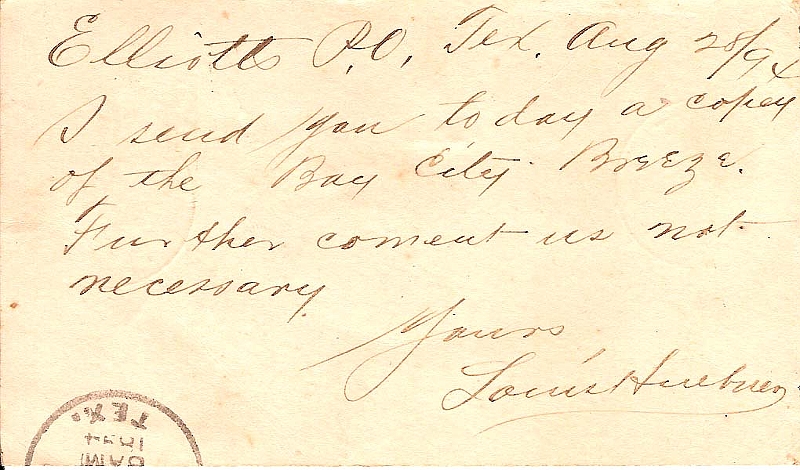 Elliotts P.O, Tex. Aug 28/94
I send you to day a copey
of the Bay City Breeze.
Further coment us not
necessary.
Yours
Louis Huebner
TEX.
1894
8AM